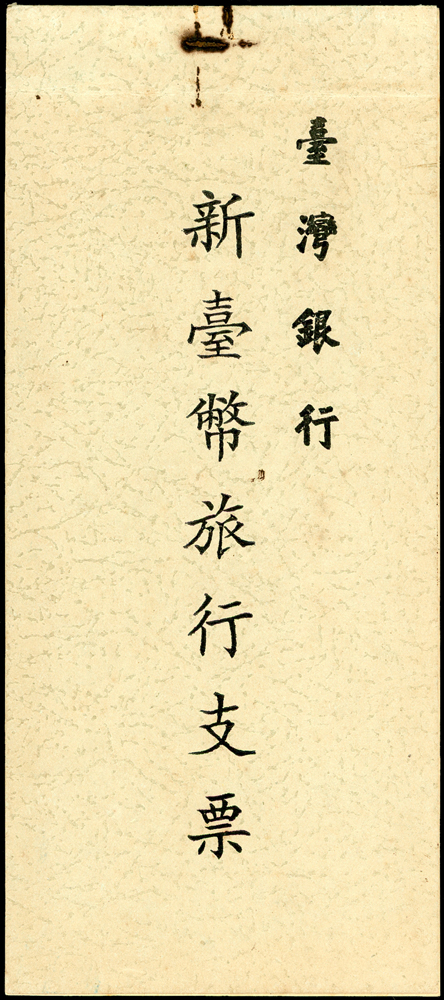 臺灣銀行
新臺幣旅行支票